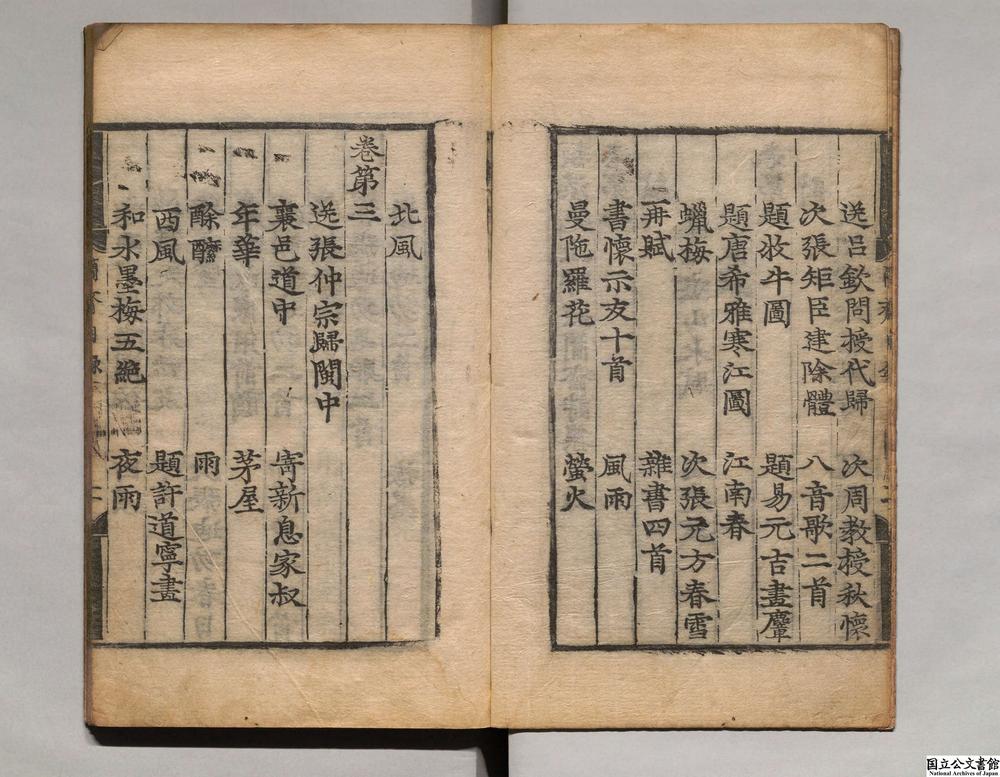 送呂欽問授代歸 次周教授秋懷
次張矩臣建除體 八音歌二首
題牧牛圖 題易元古畫麞
題唐希雅寒江圖 江南春
蠟梅 次張元方春雪
再賦 雜書四首
書懷示友十首 風雨
曼陁羅花 螢火
北風
卷第三
送張仲宗歸閩中
襄邑道中 寄新息家叔
年華 茅屋
酴醾 雨
西風 題許道寧畫
和水墨梅五絶 夜雨
国立公文書館
National Archives of Japan